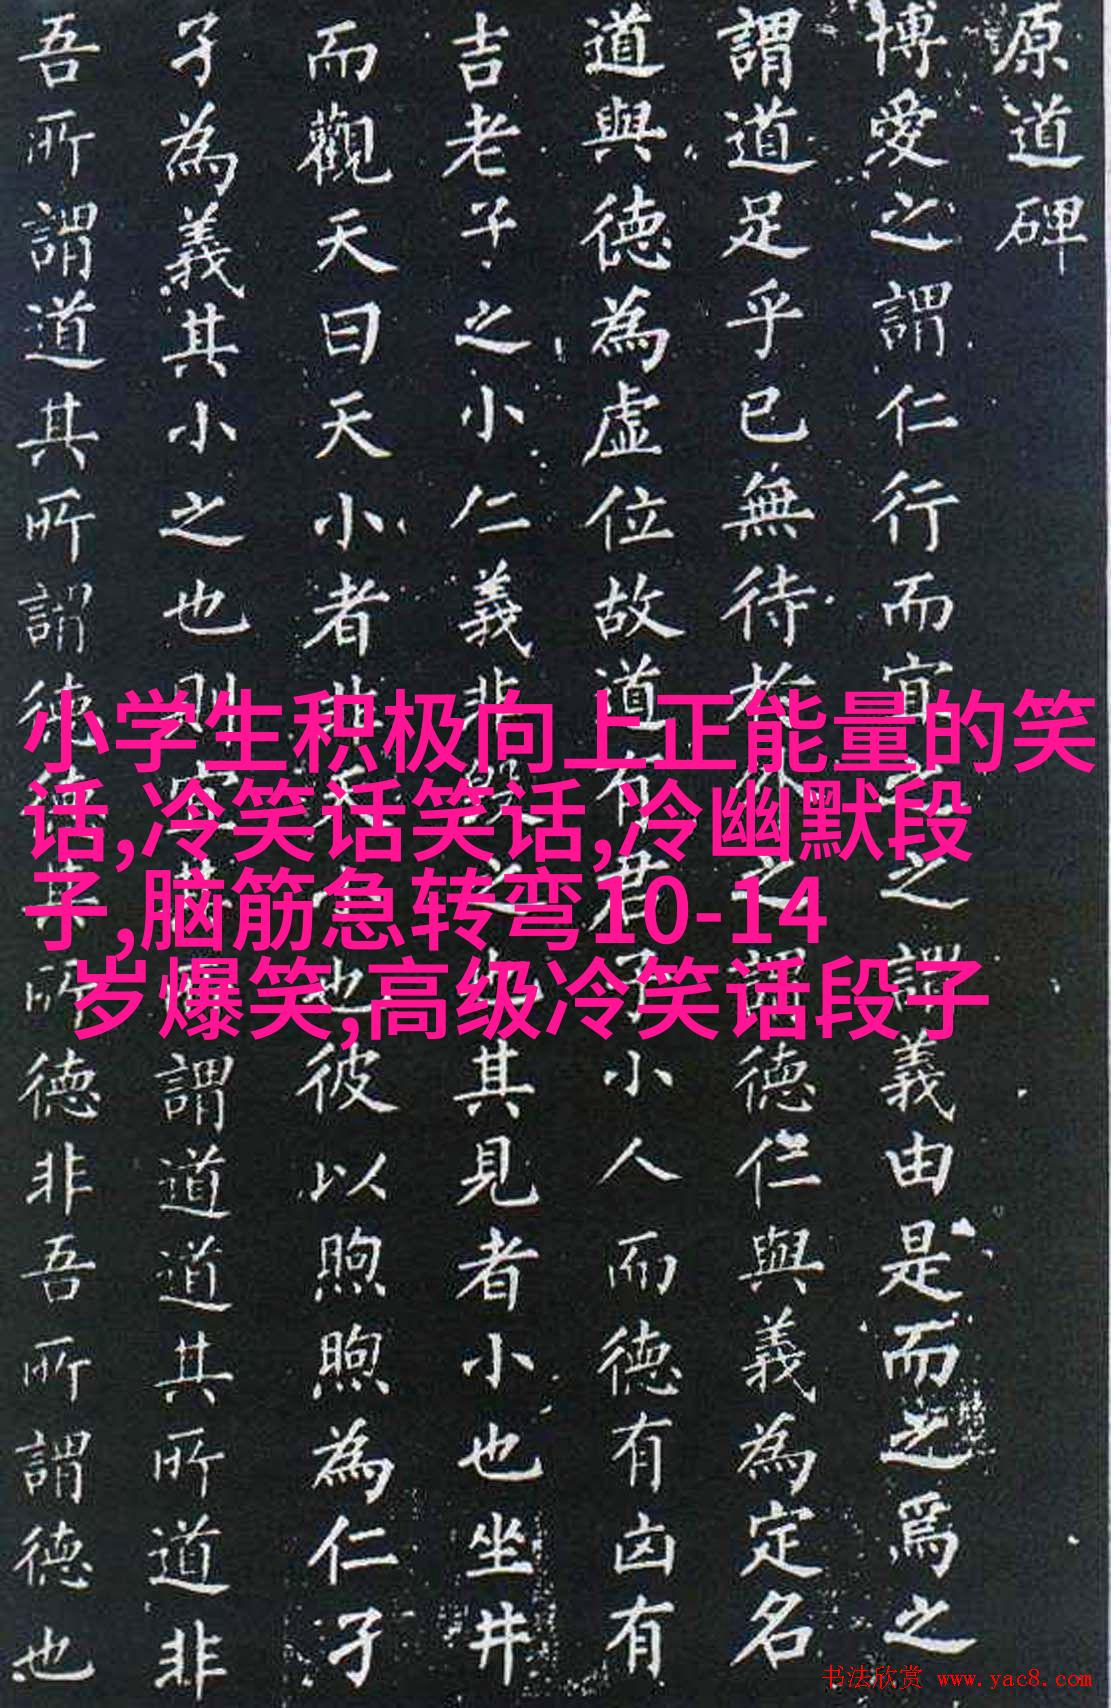 原道碑
博愛之謂仁行而宜之之謂義由是而之爲之
謂道足乎已無待於外之謂德仁與義為定名
道與德為虛位故道有君子小人而德有凶有
吉老子之小仁義非毀之也其見者小也坐井
而觀天曰天小者非天小也彼以煦煦為仁孑
孑為義其小之也則宜其所謂道道其所道非
吾所謂道其所謂德德其所德非吾所謂德也
小学生积极向上正能量的笑
话,冷笑话笑话,冷幽默段
子,脑筋急转弯10-14
岁爆笑,高级冷笑话段子
书法欣赏 www.yac8.com